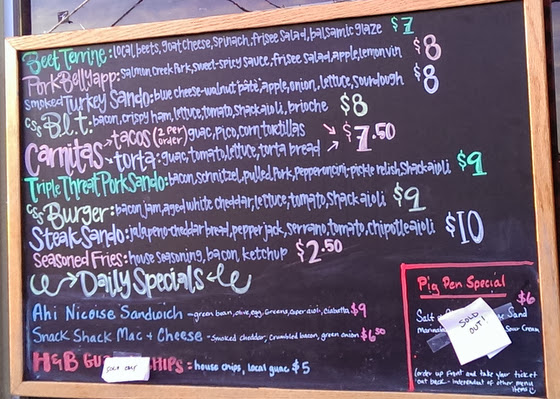 Beet Terrine: local beets, goat cheese, spinach, frisee salad, balsamic glaze $7
Pork Belly app: Salmon Creek Pork, sweet-spicy sauce, frisee salad, apple, lemon vin $8
Smoked Turkey Sando: blue cheese-walnut pâte, apple, onion, lettuce, sourdough $8
CSS B.L.T.: bacon, crispy ham, lettuce, tomato, shack aioli, brioche $8
Carnitas → tacos (2 per order) guac, pico, corn tortillas → $7.50
→ torta: guac, tomato, lettuce, torta bread →
Triple Threat Pork Sando: bacon, schnitzel, pulled Pork, Pepperoncini-pickle relish, Shack aioli $9
CSS Burger: bacon jam, aged white cheddar, lettuce, tomato, Shack aioli $9
Steak Sando: jalapeno-cheddar bread, pepper jack, serrano, tomato, chipotle aioli $10
Seasoned Fries: house seasoning, bacon, ketchup $2.50
Daily Specials
Ahi Nicoise Sandwich - green bean, olive, egg, Greens, caper aioli, ciabatta $9
Snack Shack Mac + Cheese - Smoked cheddar, Crumbled bacon, green onion $6.50
H&B CHIPS: house chips, local guac $5
SOLD OUT
Pig Pen Special
$6
Salt Sand
Sour Cream
SOLD OUT!
(order up front and take your ticket
out back - independent of other menu
items)